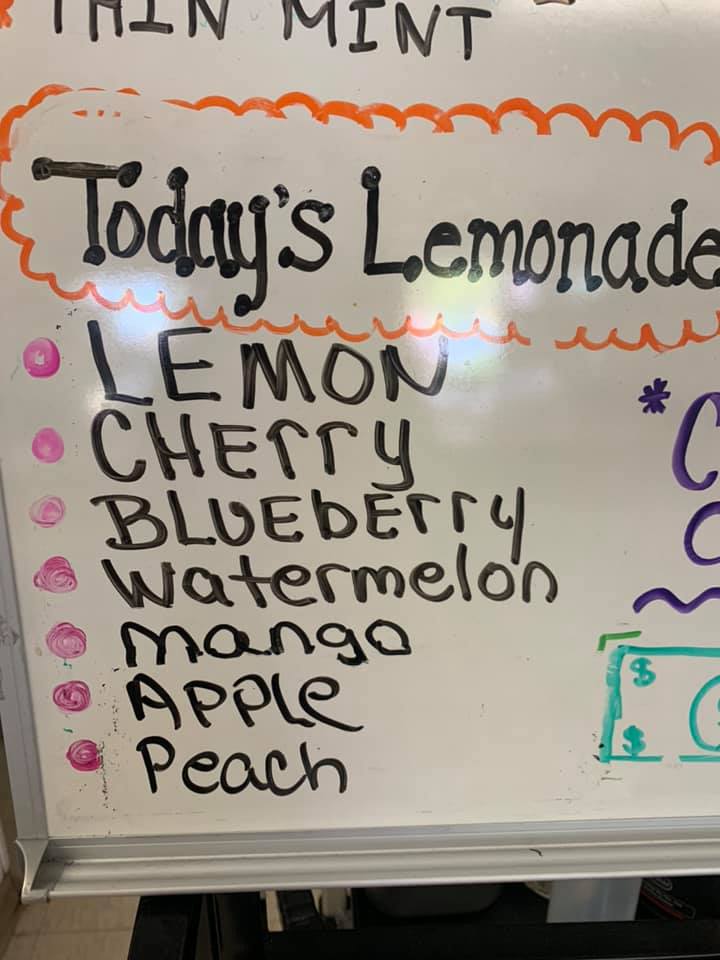 THIN MINT
Today's Lemonade
LEMON
CHErry
BLUEbErry
watermelon
mango
APPLe
Peach
*C
$
$